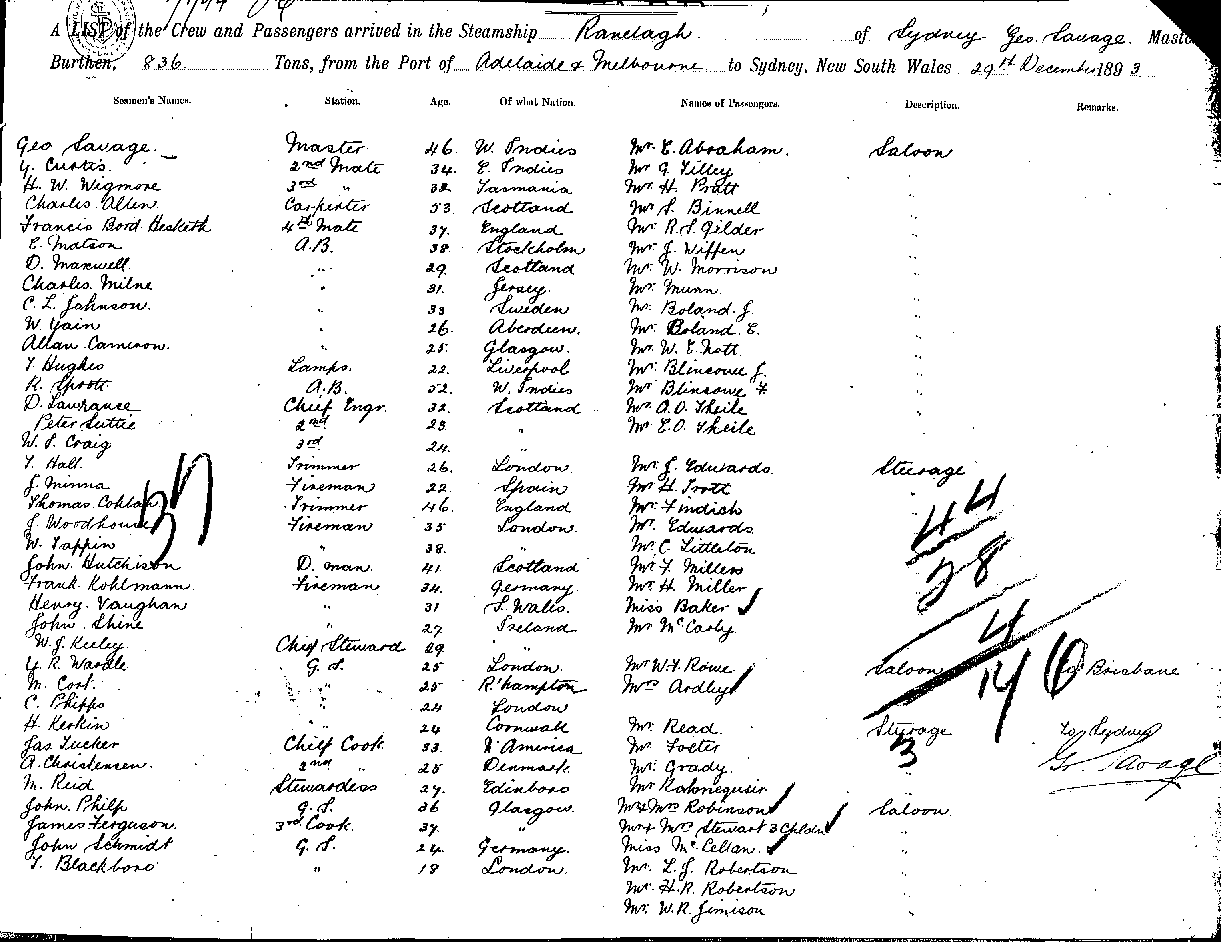 A LIST of the Crew and Passengers arrived in the Steamship Ranelagh of Sydney Geo. Savage. Maste
Burthen, 836 Tons, from the Port of Adelaide & Melbourne to Sydney, New South Wales 29th December 1893
Seamen's Names. Station. Age. Of what Nation. Names of Passengers. Description. Remarks.
Geo Savage. Master 46. W. Indies Mr. E. Abraham. Saloon
Y. Curtis. 2nd Mate 34. E. Indies Mr G. Tilley
H. W. Wigmore 3rd " 32. Tasmania Mr H. Pratt
Charles Allen. Carpenter 53. Scotland Mr S. Binnell
Francis Bord Hesketh 4th Mate 37. England Mr. R. S. Gilder
E. Matson A.B. 38. Stockholm Mr. J. Wiffen
D. Maxwell. " 29. Scotland Mr. W. Morrison
Charles. Milne " 31. Jersey. Mr. Munn.
C. L. Johnson. " 33 Sweden Mr. Boland. J.
W. Yain " 26. Aberdeen. Mr. Boland. E.
Allan Cameron. " 25. Glasgow. Mr. W. E. Nott.
T. Hughes Lamps. 22. Liverpool Mr. Blinsowe J.
R. Spoott A.B. 52. W. Indies Mr Blinsowe F
D. Lawrance Chief Engr. 32. Scotland Mr. O. O. Theile
Peter Suttie 2nd 23. " Mr. E. O. Theile
W. S. Craig 3rd 24. "
T. Hall. Trimmer 26. London. Mr. J. Edwards. Steerage
J. Minna Fireman 22. Spain Mr H. Trott
Thomas. Cohlan Trimmer 46. England Mr. Findish
J. Woodhouse Fireman 35 London. Mr. Edwards
W. Tappin " 38. " Mr C. Littleton
John. Hutchison D. man. 41. Scotland Mr F. Millers
Frank. Kohlmann. Fireman 34. Germany. Mr H. Miller
Henry. Vaughan " 31 S. Wales. Miss Baker
John Shine " 27. Ireland Mr McCarty
W. J. Keeley. Chief Steward 29. "
Y. R. Wardle G. S. 25 London. Mr W. F. Rowe Saloon to Brisbane
M. Cort. " 25 R'hampton Mrs Ardley
C. Phipps " 24 London
H. Kerkin " 24 Cornwall Mr. Read. Steerage to Sydney
Jas Tucker Chief Cook 33. N America Mr. Foster
A. Christensen. 2nd " 25 Denmark. Mr. Grady.
M. Reid Stewardess 27. Edinboro Mr Kahnegusir
John. Philp G. S. 36 Glasgow. Mr & Mrs Robinson Saloon
James Ferguson. 3rd Cook. 37. " Mr & Mrs Stewart 3 Children
John Schmidt G. S. 24. Germany. Miss McCellan.
T. Blackboro " 18 London. Mr. L. J. Robertson
Mr. H. R. Robertson
Mr. W. R. Jimison
37
44
38
4
146
3